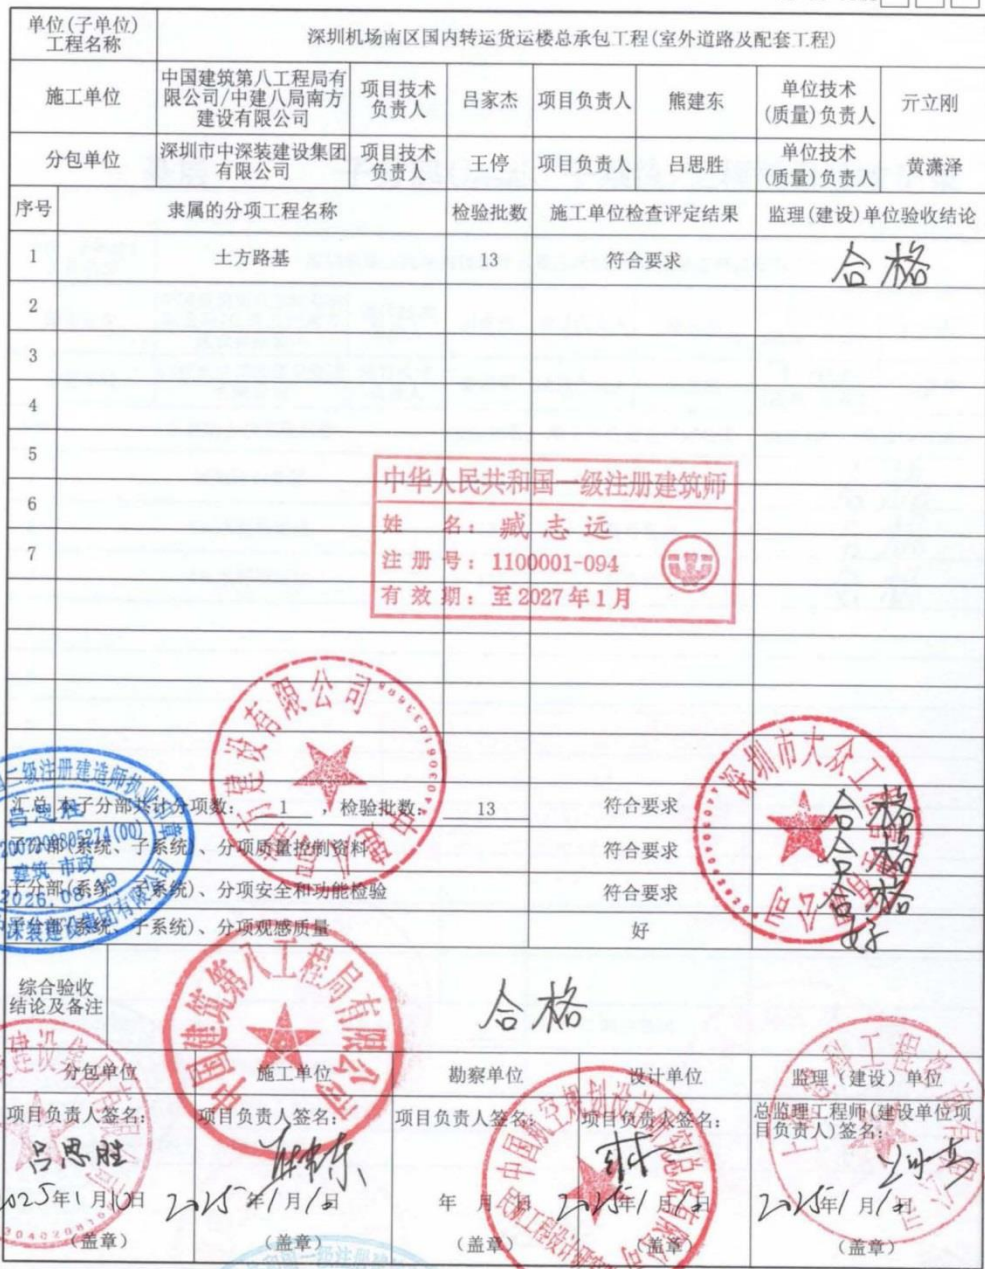 单位(子单位)
工程名称
深圳机场南区国内转运货运楼总承包工程(室外道路及配套工程)
施工单位
中国建筑第八工程局有
限公司/中建八局南方
建设有限公司
项目技术
负责人
吕家杰
项目负责人
熊建东
单位技术
(质量)负责人
亓立刚
分包单位
深圳市中深装建设集团
有限公司
项目技术
负责人
王停
项目负责人
吕思胜
单位技术
(质量)负责人
黄潇泽
序号
隶属的分项工程名称
检验批数
施工单位检查评定结果
监理(建设)单位验收结论
1
土方路基
13
符合要求
合格
2
3
4
5
6
7
中华人民共和国一级注册建筑师
姓 名：臧志远
注册号：1100001-094
有效期：至2027年1月
建设有限公司
深圳市大众工程
二级注册建造师执业
吕思胜
建筑 市政
2026.08.
汇总 本子分部共计分项数： 1 ，检验批数：
13
符合要求
合格
子分部(系统、子系统)、分项质量控制资料
符合要求
合格
子分部(系统、子系统)、分项安全和功能检验
符合要求
合格
子分部(系统、子系统)、分项观感质量
好
好
综合验收
结论及备注
合格
中国建筑第八工程局有限公司
分包单位
施工单位
勘察单位
设计单位
监理（建设）单位
项目负责人签名：
吕思胜
2025年1月10日
（盖章）
项目负责人签名：
2025年1月10日
（盖章）
项目负责人签名：
年 月 日
（盖章）
项目负责人签名：
2025年1月10日
（盖章）
总监理工程师(建设单位项
目负责人)签名：
2025年1月10日
（盖章）